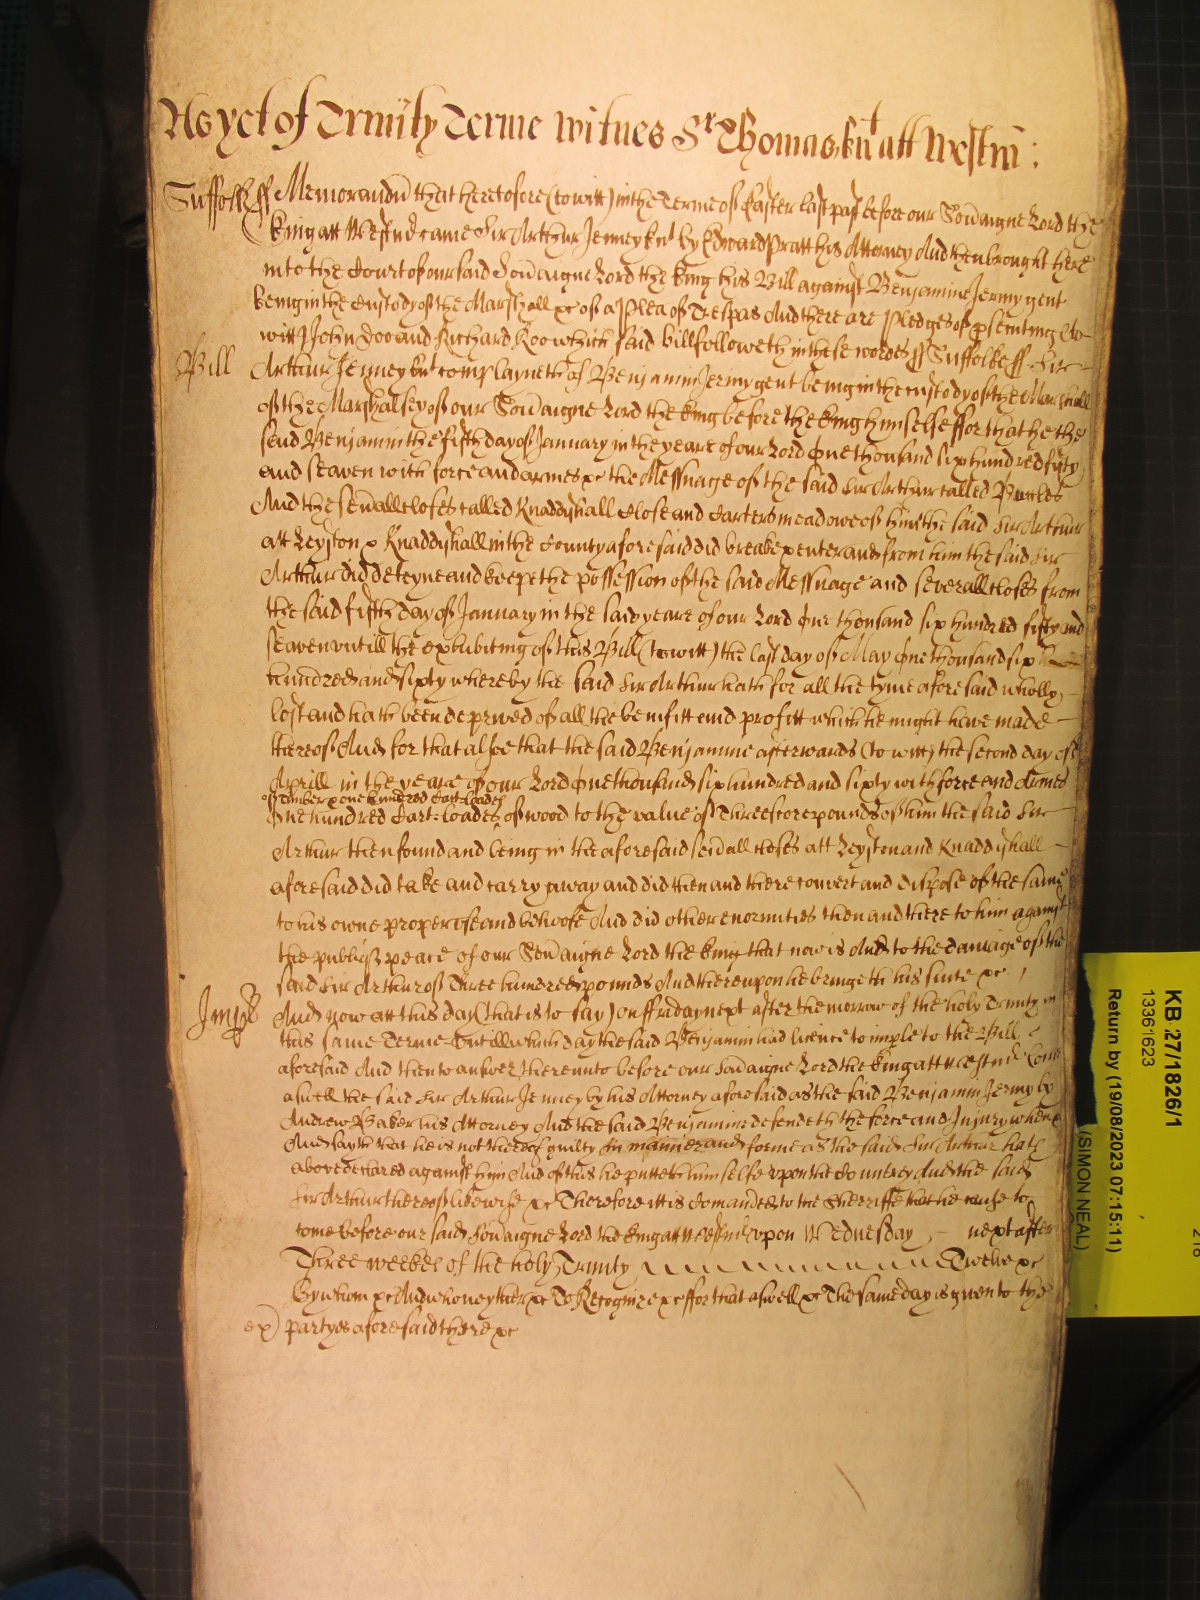 As yet of Trinity Terme Witnes Sr Thomas knt att Westm:
Suffolk ss Memorandum that heretofore (to witt) in the Terme of Easter last past before our Sovaigne Lord the
King att Westm came Sir Arthur Jenney knt by Edward Pratt his Attorney And then brought here
into the Court of our said Sovaigne Lord the King his Bill against Benjamine Jermy gent
being in the custody of the Marshall &c of a Plea of Trespas And there are Pledges of psecuting (to
witt) John Doo and Richard Roo which said bill followeth in these wordes ss Suffolke ss Sir
Bill Arthur Jenney knt complayneth of Benjamin Jermy gent being in the custody of the Marshall
of the Marshalsey of our Sovaigne Lord the King before the King himselfe ffor that he the
said Benjamin the fifth day of January in the yeare of our Lord One thousand six hundred fifty
and seaven with force and armes &c the Messuage of the said Sir Arthur called
And the sevall closes called Knaddishall Close and Carters meadowe of him the said Sir Arthur
att Leyston & Knaddishall in the County aforesaid did breake & enter and from him the said Sir
Arthur did deteyne and keepe the possession of the said Messuage and severall closes from
the said fifth day of January in the said yeare of our Lord One thousand six hundred fifty and
seaven untill the exhibiting of this Bill (to witt) the last day of May One thousand six
hundred and sixty whereby the said Sir Arthur hath for all the tyme aforesaid wholly
lost and hath been deprived of all the benifitt and profitt which he might have made
thereof And for that alsoe that the said Benjamine afterwards (to witt) the second day of
Aprill in the yeare of our Lord One thousand six hundred and sixty with force and Armes
of Timber & one hundred Cart loades
One hundred Cart: loades of wood to the value of Threescore pounds of him the said Sir
Arthur then found and being in the aforesaid sevall closes att Leyston and Knaddishall
aforesaid did take and carry away and did then and there convert and dispose of the same
to his owne proper use and behoofe And did other enormities then and there to him against
the publique peace of our Sovaigne Lord the King that now is And to the damage of the
said Sir Arthur of Three hundred pounds And thereupon he bringeth his suite &c
Imple And now att this day (that is to say) on ffraday next after the morrow of the holy Trinity in
this same Terme Untill which day the said Benjamin had licence to imple to the Bill
aforesaid And then to answer thereunto before our Sovaigne Lord the King att Westm Come
aswell the said Sir Arthur Jenney by his Attorney aforesaid as the said Benjamin Jermy by
Andrew Baker his Attorney And the said Benjamine defendeth the force and Injury when &c
And sayth that he is not thereof guilty in manner and forme as the said Sir Arthur hath
above declared against him And of this he putteth himselfe upon the Countrey And the said
Sir Arthur thereof likewise &c Therefore itt is Comanded to the Sherriffe that he cause to
come before our said Sovaigne Lord the King att Westm upon Wednesday next after
Three weekes of the holy Trinity Twelve &c
By whom &c And who neyther &c To Recognize &c ffor that aswell &c The same day is given to the
ex) partyes aforesaid there &c
KB 27/1826/1
13361623
Return by (19/08/2023 07:15:11)
(SIMON NEAL)